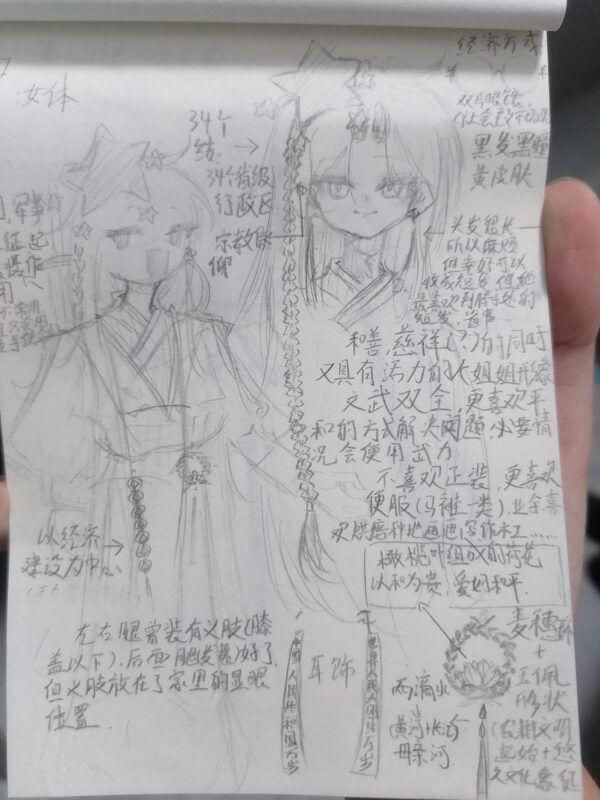 女体
经济方式
双片眼镜
(社会主义市场
黑发黑瞳
黄皮肤
34个
结
34个省级
行政区
宗教信
仰
军事
征起
操作
用
头发很长
所以麻烦
但幸好可以
和善,慈祥(?)的同时
又具有活力的大姐姐形象
文武双全,更喜欢平
和的方式解决问题,必要情
况会使用武力
不喜欢正装,更喜欢
便服(马褂一类),业余喜
欢烘焙种地画画写作木工……
橄榄叶组成的荷花
以和为贵,爱好和平.
以经济
建设为中心
左右腿曾装有义肢(膝
盖以下),后两腿发展好了,
但义肢放在了家里的显眼
位置.
中华人民共和国万岁
耳饰
世界人民大团结万岁
两滴水
(黄河+长江)
母亲河.
麦穗环
+
玉佩
形状
(农耕文明
起始+悠
久文化象征